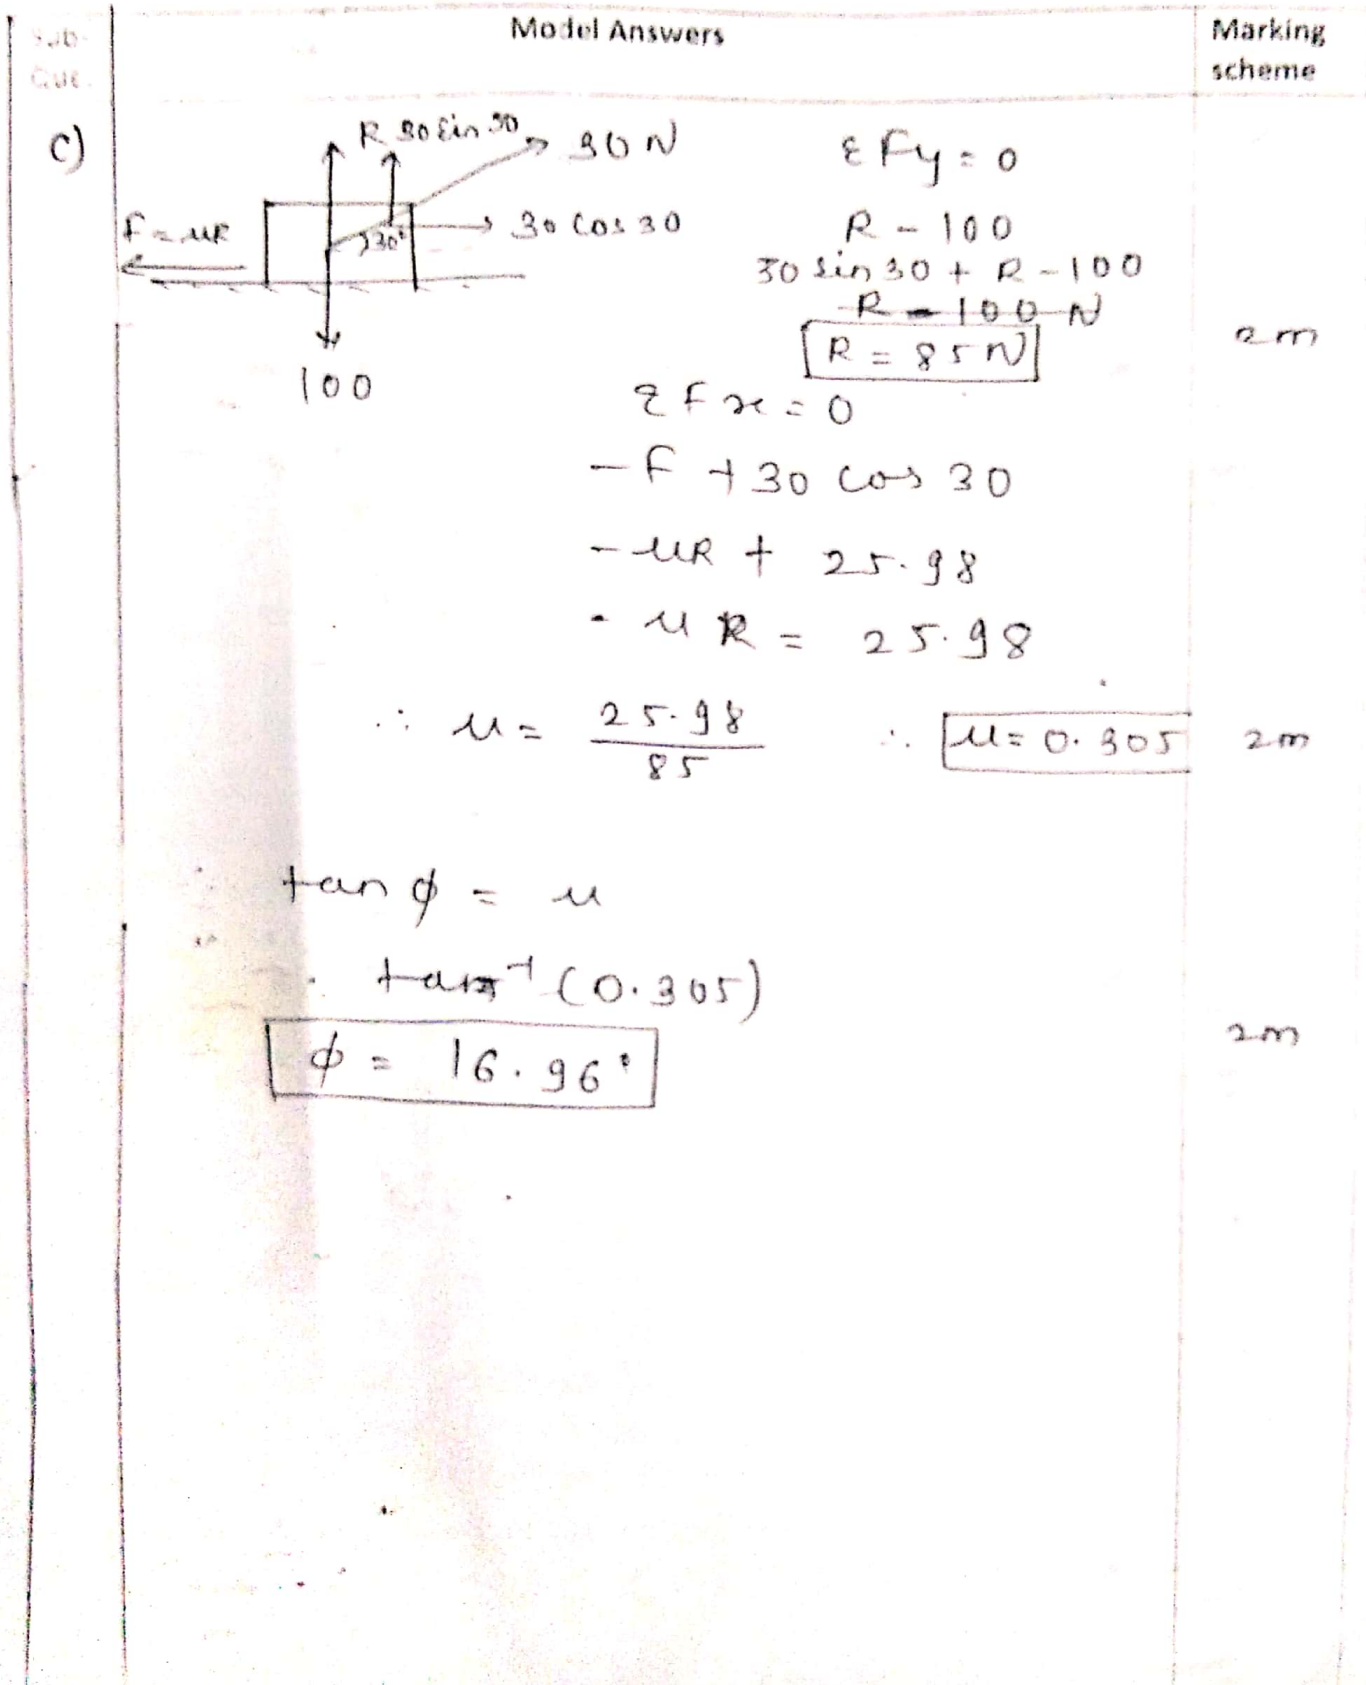 Sub-
Que.
Model Answers
Marking
scheme
c)
R 30 sin 30
30 N
F = μR
30°
30 cos 30
100
ΣFy = 0
R - 100
30 sin 30 + R - 100
R = 100 N
R = 85 N
2m
ΣFx = 0
- F + 30 cos 30
- μR + 25.98
- μR = 25.98
∴ μ = 25.98 / 85
∴ μ = 0.305
2m
tan ϕ = μ
tan⁻¹ (0.305)
ϕ = 16.96°
2m